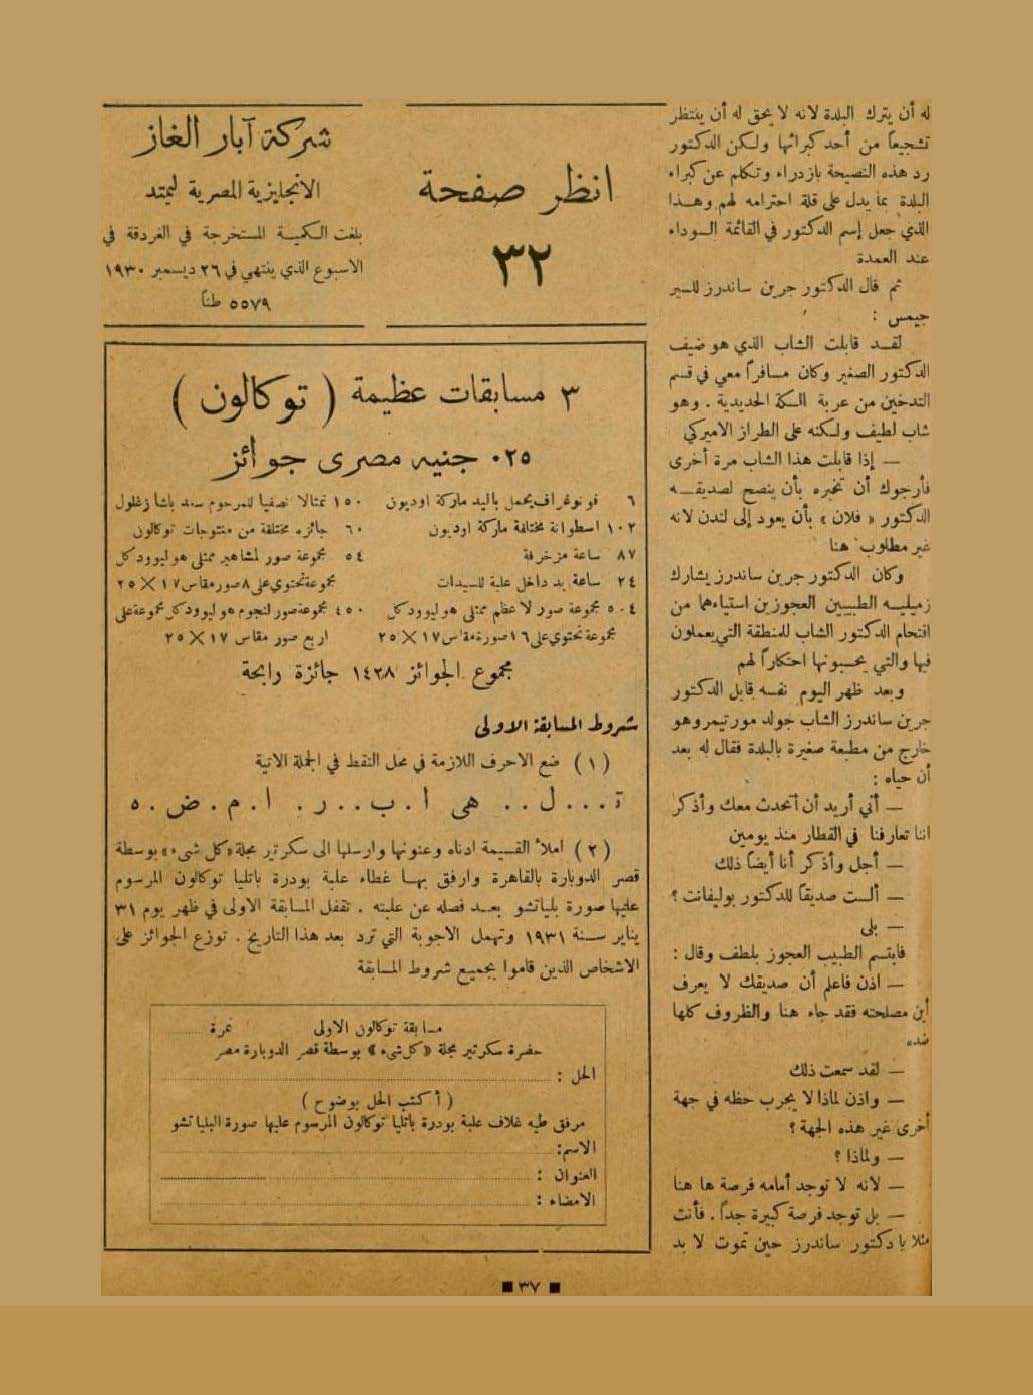 له أن يترك البلدة لانه لا يحق له أن ينتظر
تشجيعاً من أحد كبرائها ولكن الدكتور
رد هذه النصيحة بازدراء وتكلم عن كبراء
البلدة بما يدل على قلة احترامه لهم وهذا
الذي جعل إسم الدكتور في القائمة السوداء
عند العمدة
ثم قال الدكتور جرين ساندرز للسير
جيمس :
لقد قابلت الشاب الذي هو ضيف
الدكتور الصغير وكان مسافراً معي في قسم
التدخين من عربة السكة الحديدية . وهو
شاب لطيف ولكنه على الطراز الاميركي
— إذا قابلت هذا الشاب مرة أخرى
فأرجوك أن تخبره بأن ينصح لصديقه
الدكتور « فلان » بأن يعود إلى لندن لانه
غير مطلوب هنا
وكان الدكتور جرين ساندرز يشارك
زميليه الطبيبين العجوزين استياءهما من
اقتحام الدكتور الشاب للمنطقة التي يعملون
فيها والتي يحسبونها احتكاراً لهم
وبعد ظهر اليوم نفسه قابل الدكتور
جرين ساندرز الشاب جولد مورتيمر وهو
خارج من مطبعة صغيرة بالبلدة فقال له بعد
أن حياه :
— أني أريد أن أتحدث معك وأذكر
اننا تعارفنا في القطار منذ يومين
— أجل وأذكر أنا أيضاً ذلك
— ألست صديقاً للدكتور بوليفانت ؟
— بلى
فابتسم الطبيب العجوز بلطف وقال :
— اذن فاعلم أن صديقك لا يعرف
أين مصلحته فقد جاء هنا والظروف كلها
ضده
— لقد سمعت ذلك
— واذن لماذا لا يجرب حظه في جهة
أخرى غير هذه الجهة ؟
— ولماذا ؟
— لانه لا توجد أمامه فرصة ها هنا
— بل توجد فرصة كبيرة جداً . فأنت
مثلا يا دكتور ساندرز حين تموت لا بد
انظر صفحة
٣٢
شركة آبار الغاز
الانجليزية المصرية ليمتد
بلغت الكمية المستخرجة في الغردقة في
الاسبوع الذي ينتهي في ٢٦ ديسمبر ١٩٣٠
٥٥٧٩ طناً
٣ مسابقات عظيمة ( توكالون )
٠٢٥ جنيه مصرى جوائز
٦ فونوغراف يحمل باليد ماركة اوديون
١٠٢ اسطوانة مختلفة ماركة اوديون
٨٧ ساعة مزخرفة
٢٤ ساعة يد داخل علبة للسيدات
٥٠٤ مجموعة صور لاعظم ممثلى هوليوود كل
مجموعة تحتوي على ١٦ صورة مقاس ١٧ × ٢٥
١٥٠ تمثالا نصفيا للمرحوم سعد باشا زغلول
٦٠ جائزه مختلفة من منتوجات توكالون
٥٤ مجموعة صور لمشاهير ممثلى هوليوود كل
مجموعة تحتوي على ٨ صور مقاس ١٧ × ٢٥
٤٥٠ مجموعة صور لنجوم هوليوود كل مجموعة على
اربع صور مقاس ١٧ × ٢٥
مجموع الجوائز ١٤٢٨ جائزة رابحة
شروط المسابقة الاولى
( ١ ) ضع الاحرف اللازمة في محل النقط في الجملة الاتية
ة . . . ل . . هى ا . ب . . ر . ا . م . ض . ه
( ٢ ) املأ القسيمة ادناه وعنونها وارسلها الى سكرتير مجلة «كل شىء» بوسطة
قصر الدوبارة بالقاهرة وارفق بها غطاء علبة بودرة باتليا توكالون المرسوم
عليها صورة بلياتشو بعد فصله عن علبته . تقفل المسابقة الاولى في ظهر يوم ٣١
يناير سنة ١٩٣١ وتهمل الاجوبة التي ترد بعد هذا التاريخ . توزع الجوائز على
الاشخاص الذين قاموا بجميع شروط المسابقة
مسابقة توكالون الاولى نمرة ......
حضرة سكرتير مجلة «كل شىء» بوسطة قصر الدوبارة مصر
الحل :
( أكتب الحل بوضوح )
مرفق طيه غلاف علبة بودرة باتليا توكالون المرسوم عليها صورة البلياتشو
الاسم:
العنوان :
الامضاء :
■ ٣٧ ■